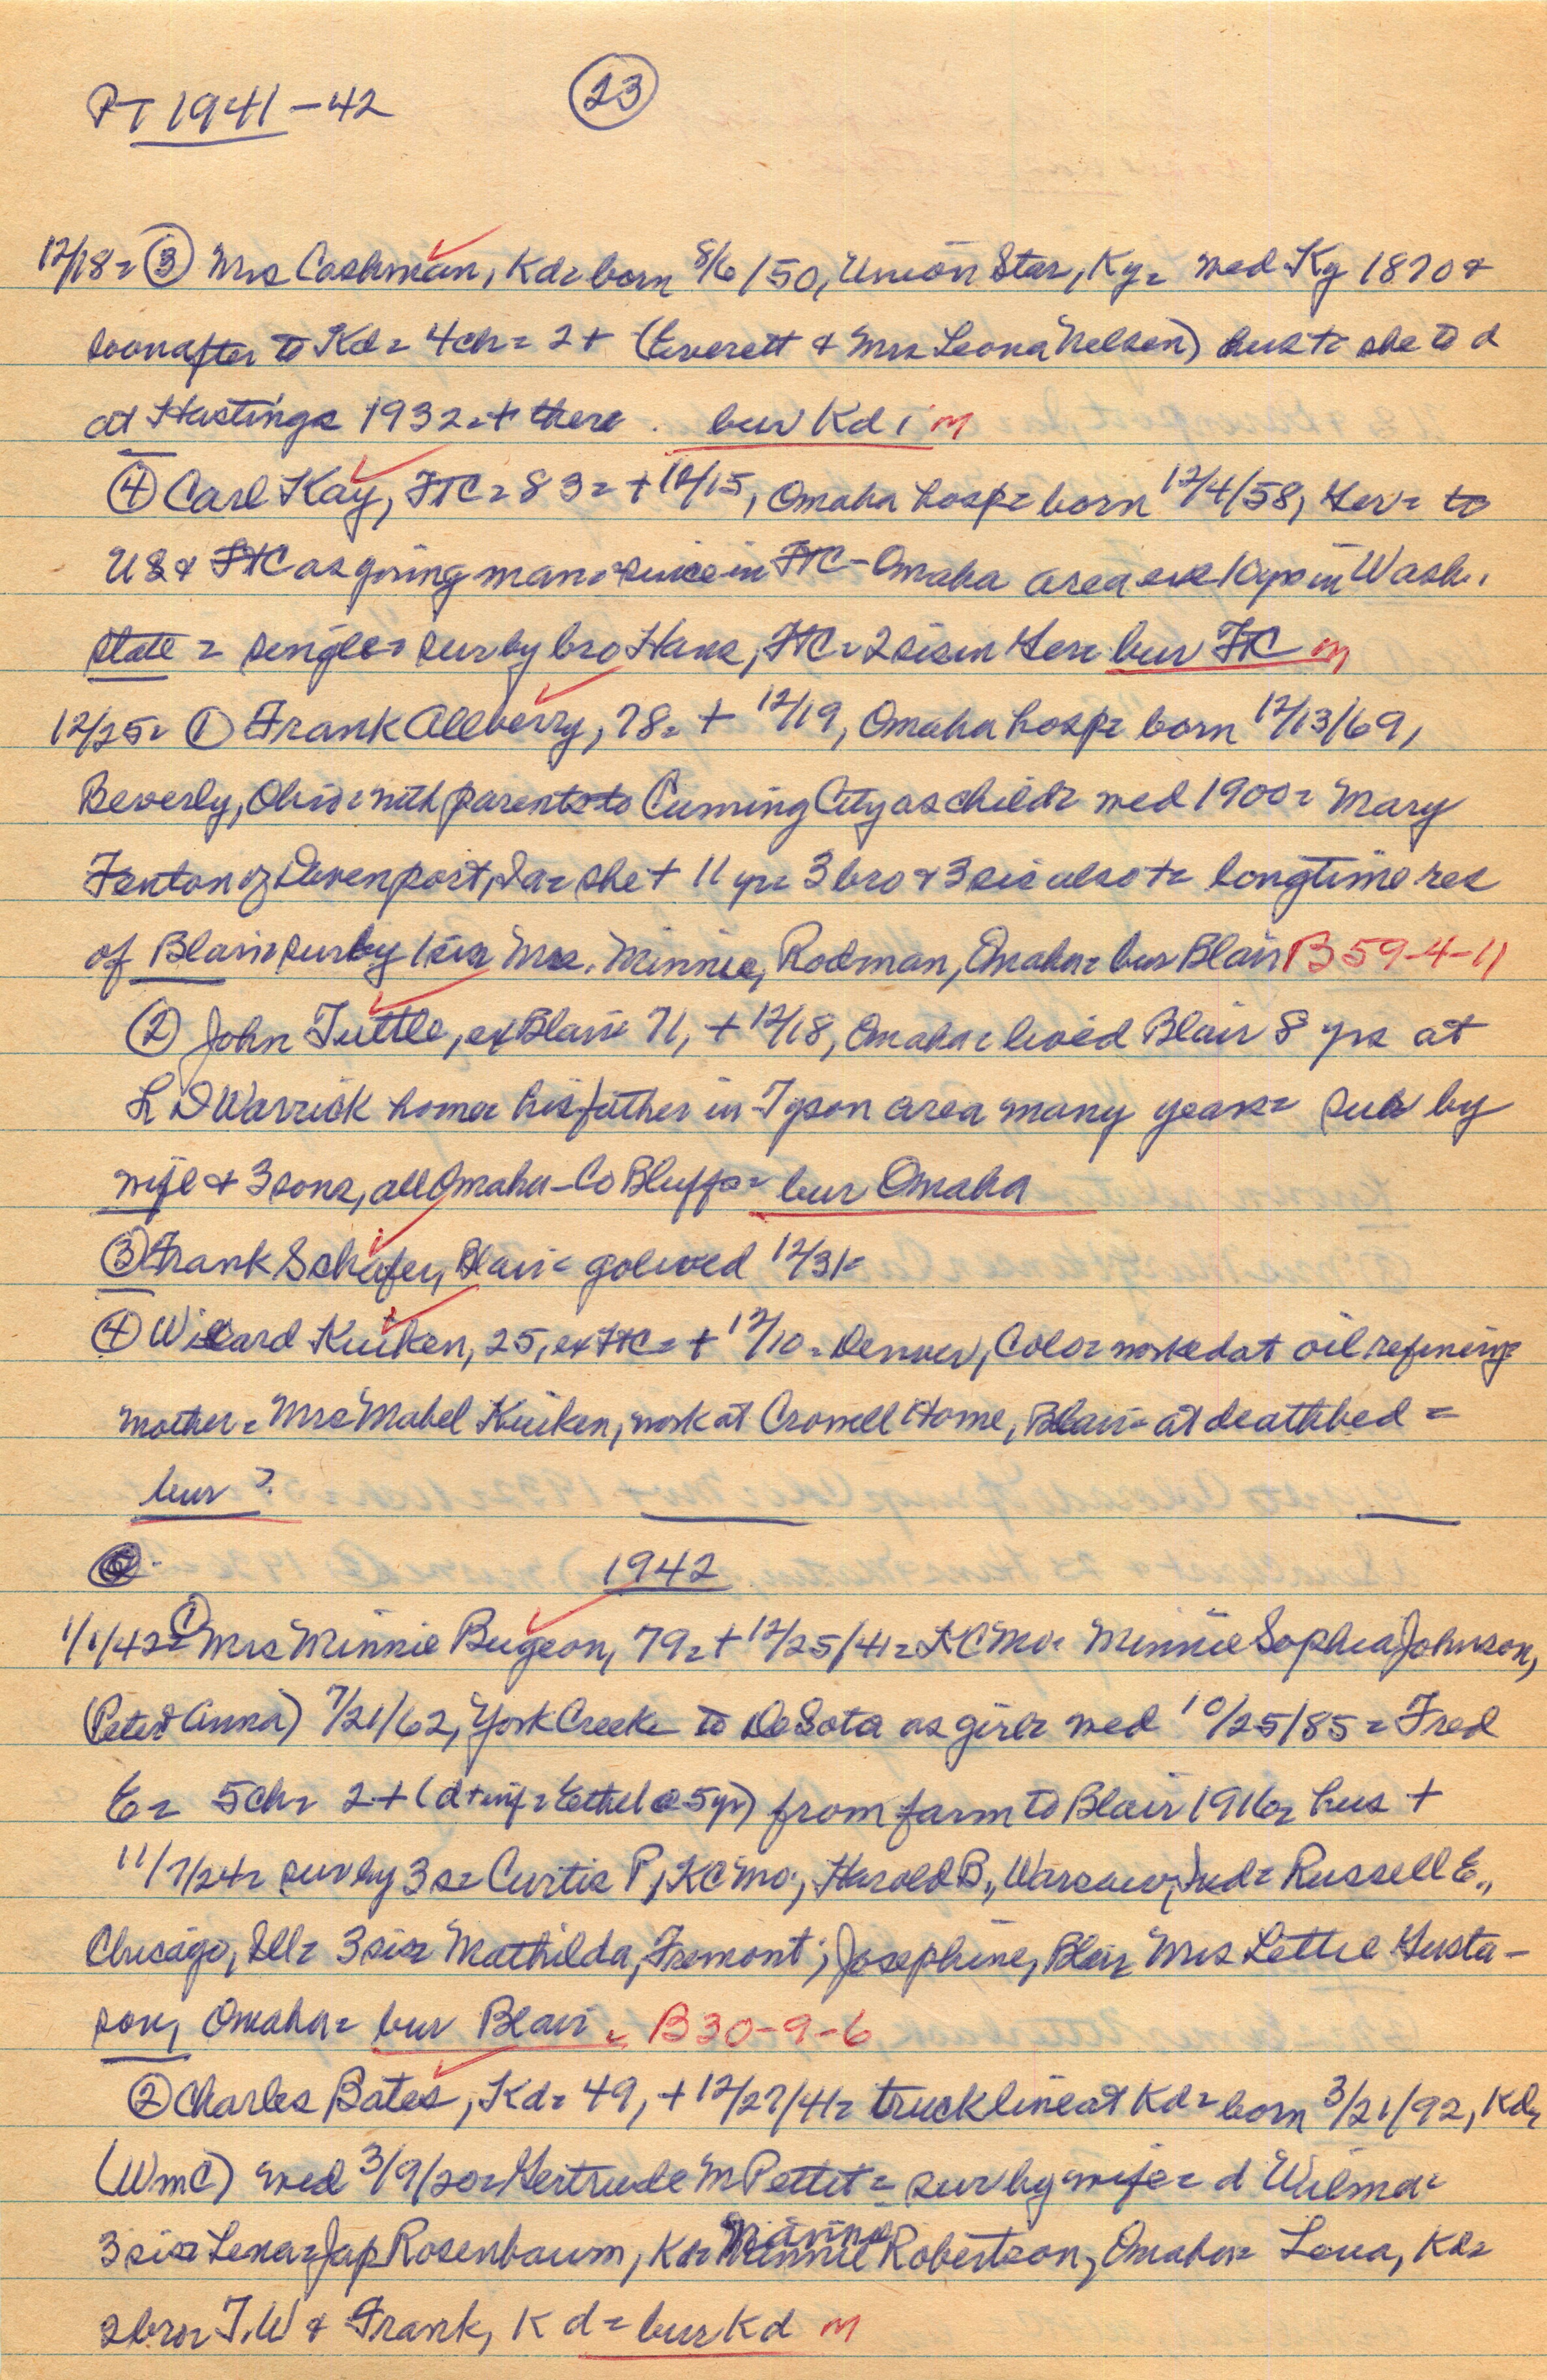 PT 1941-42 (23)
12/18= (3) Mrs Cashman, Kd= born 8/6/50, Union Star, Ky= wed Ky 1870 &
soon after to Kd= 4ch= 2+ (Everett & Mrs Leona Nelson) hus+= she to d
at Hastings 1932=+ there. bur Kd m
(4) Carl Kay, FTC= 83= + 12/15, Omaha hosp= born 12/4/58, Ger= to
US & FTC as young man= since in FTC-Omaha area exc 10 yrs in Wash.
state = single= sur by bro Hans, FTC= 2 sis in Ger= bur FTC m
12/25= (1) Frank Allberry, 78= + 12/19, Omaha hosp= born 12/13/69,
Beverly, Ohio= with parents to Cuming City as child= wed 1900= Mary
Fenton of Davenport, Ia= she + 11 yr= 3 bro & 3 sis also += longtime res
of Blair= sur by 1 sis= Mrs. Minnie, Rodman, Omaha= bur Blair B 59-4-11
(2) John Tuttle, ex Blair= 71, + 12/18, Omaha= lived Blair 8 yrs at
L D Warrick home= his father in Tyson area many years= sur by
wife & 3 sons, all Omaha-Co Bluffs= bur Omaha
(3) Frank Schafer, Blair= gol wed 12/31=
(4) Willard Kuiken, 25, ex FTC= + 12/10= Denver, Colo= worked at oil refining=
mother= Mrs Mabel Kuiken, work at Crowell Home, Blair= at deathbed =
bur ?
1942
1/1/42= (1) Mrs Minnie Bugeon, 79= + 12/25/41= KC Mo= Minnie Sophia Johnson,
(Peter & Anna) 7/21/62, York Creek= to DeSota as girl= wed 10/25/85= Fred
E= 5ch= 2+ (d + inf= Ethel @ 5yr) from farm to Blair 1916= hus +
11/7/24= sur by 3 s= Curtis P, KC Mo; Harold B., Warsaw, Ind= Russell E.,
Chicago, Ill= 3 sis= Mathilda, Fremont; Josephine, Blair= Mrs Lettie Gusta-
son, Omaha= bur Blair= B 30-9-6
(2) Charles Bates, Kd= 49, + 12/27/41= truck line at Kd= born 3/21/92, Kd=
(Wm C) wed 3/9/20= Gertrude M Pettit= sur by wife= d Wilma=
3 sis= Lena= Jap Rosenbaum, Kd= Robertson, Omaha= Loua, Kd=
2 bro= T.W & Frank, Kd= bur Kd m